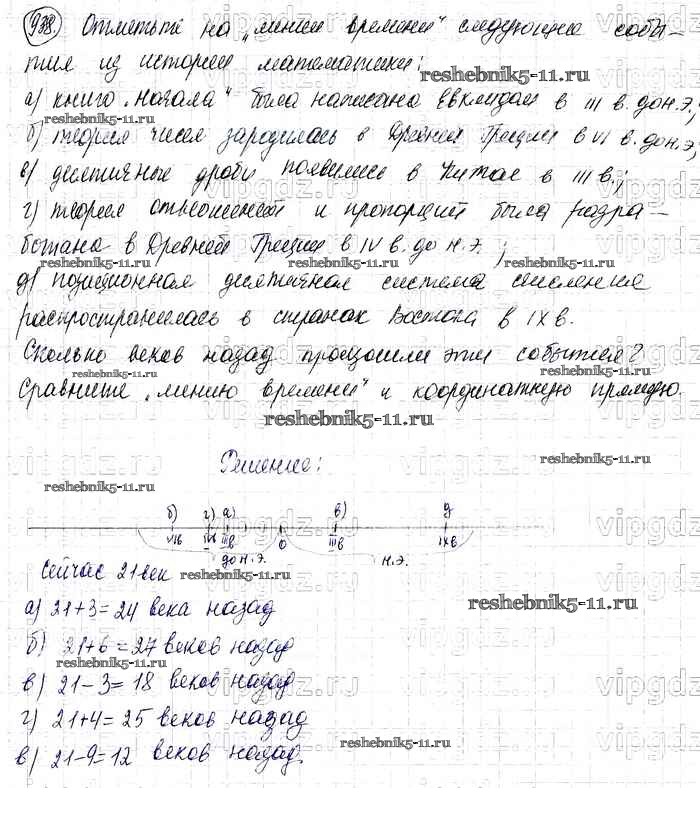 938. Отметьте на „линии времени" следующие собы-
тия из истории математики:
а) книга „Начала" была написана Евклидом в III в. до н.э.,
б) теория чисел зародилась в Древней Греции в VI в. до н.э.,
в) десятичные дроби появились в Китае в III в.;
г) теория отношений и пропорций была разра-
ботана в Древней Греции в IV в. до н.э.;
д) позиционная десятичная система счисления
распространилась в странах Востока в IX в.
Сколько веков назад произошли эти события?
Сравните „линию времени" и координатную прямую.
Решение:
б) г) а) в) д
VIв IVв IIIв 0 IIIв IXв
до н.э. н.э.
Сейчас 21 век
а) 21+3=24 века назад
б) 21+6=27 веков назад
в) 21-3=18 веков назад
г) 21+4=25 веков назад
в) 21-9=12 веков назад.
reshebnik5-11.ru
vipgdz.ru